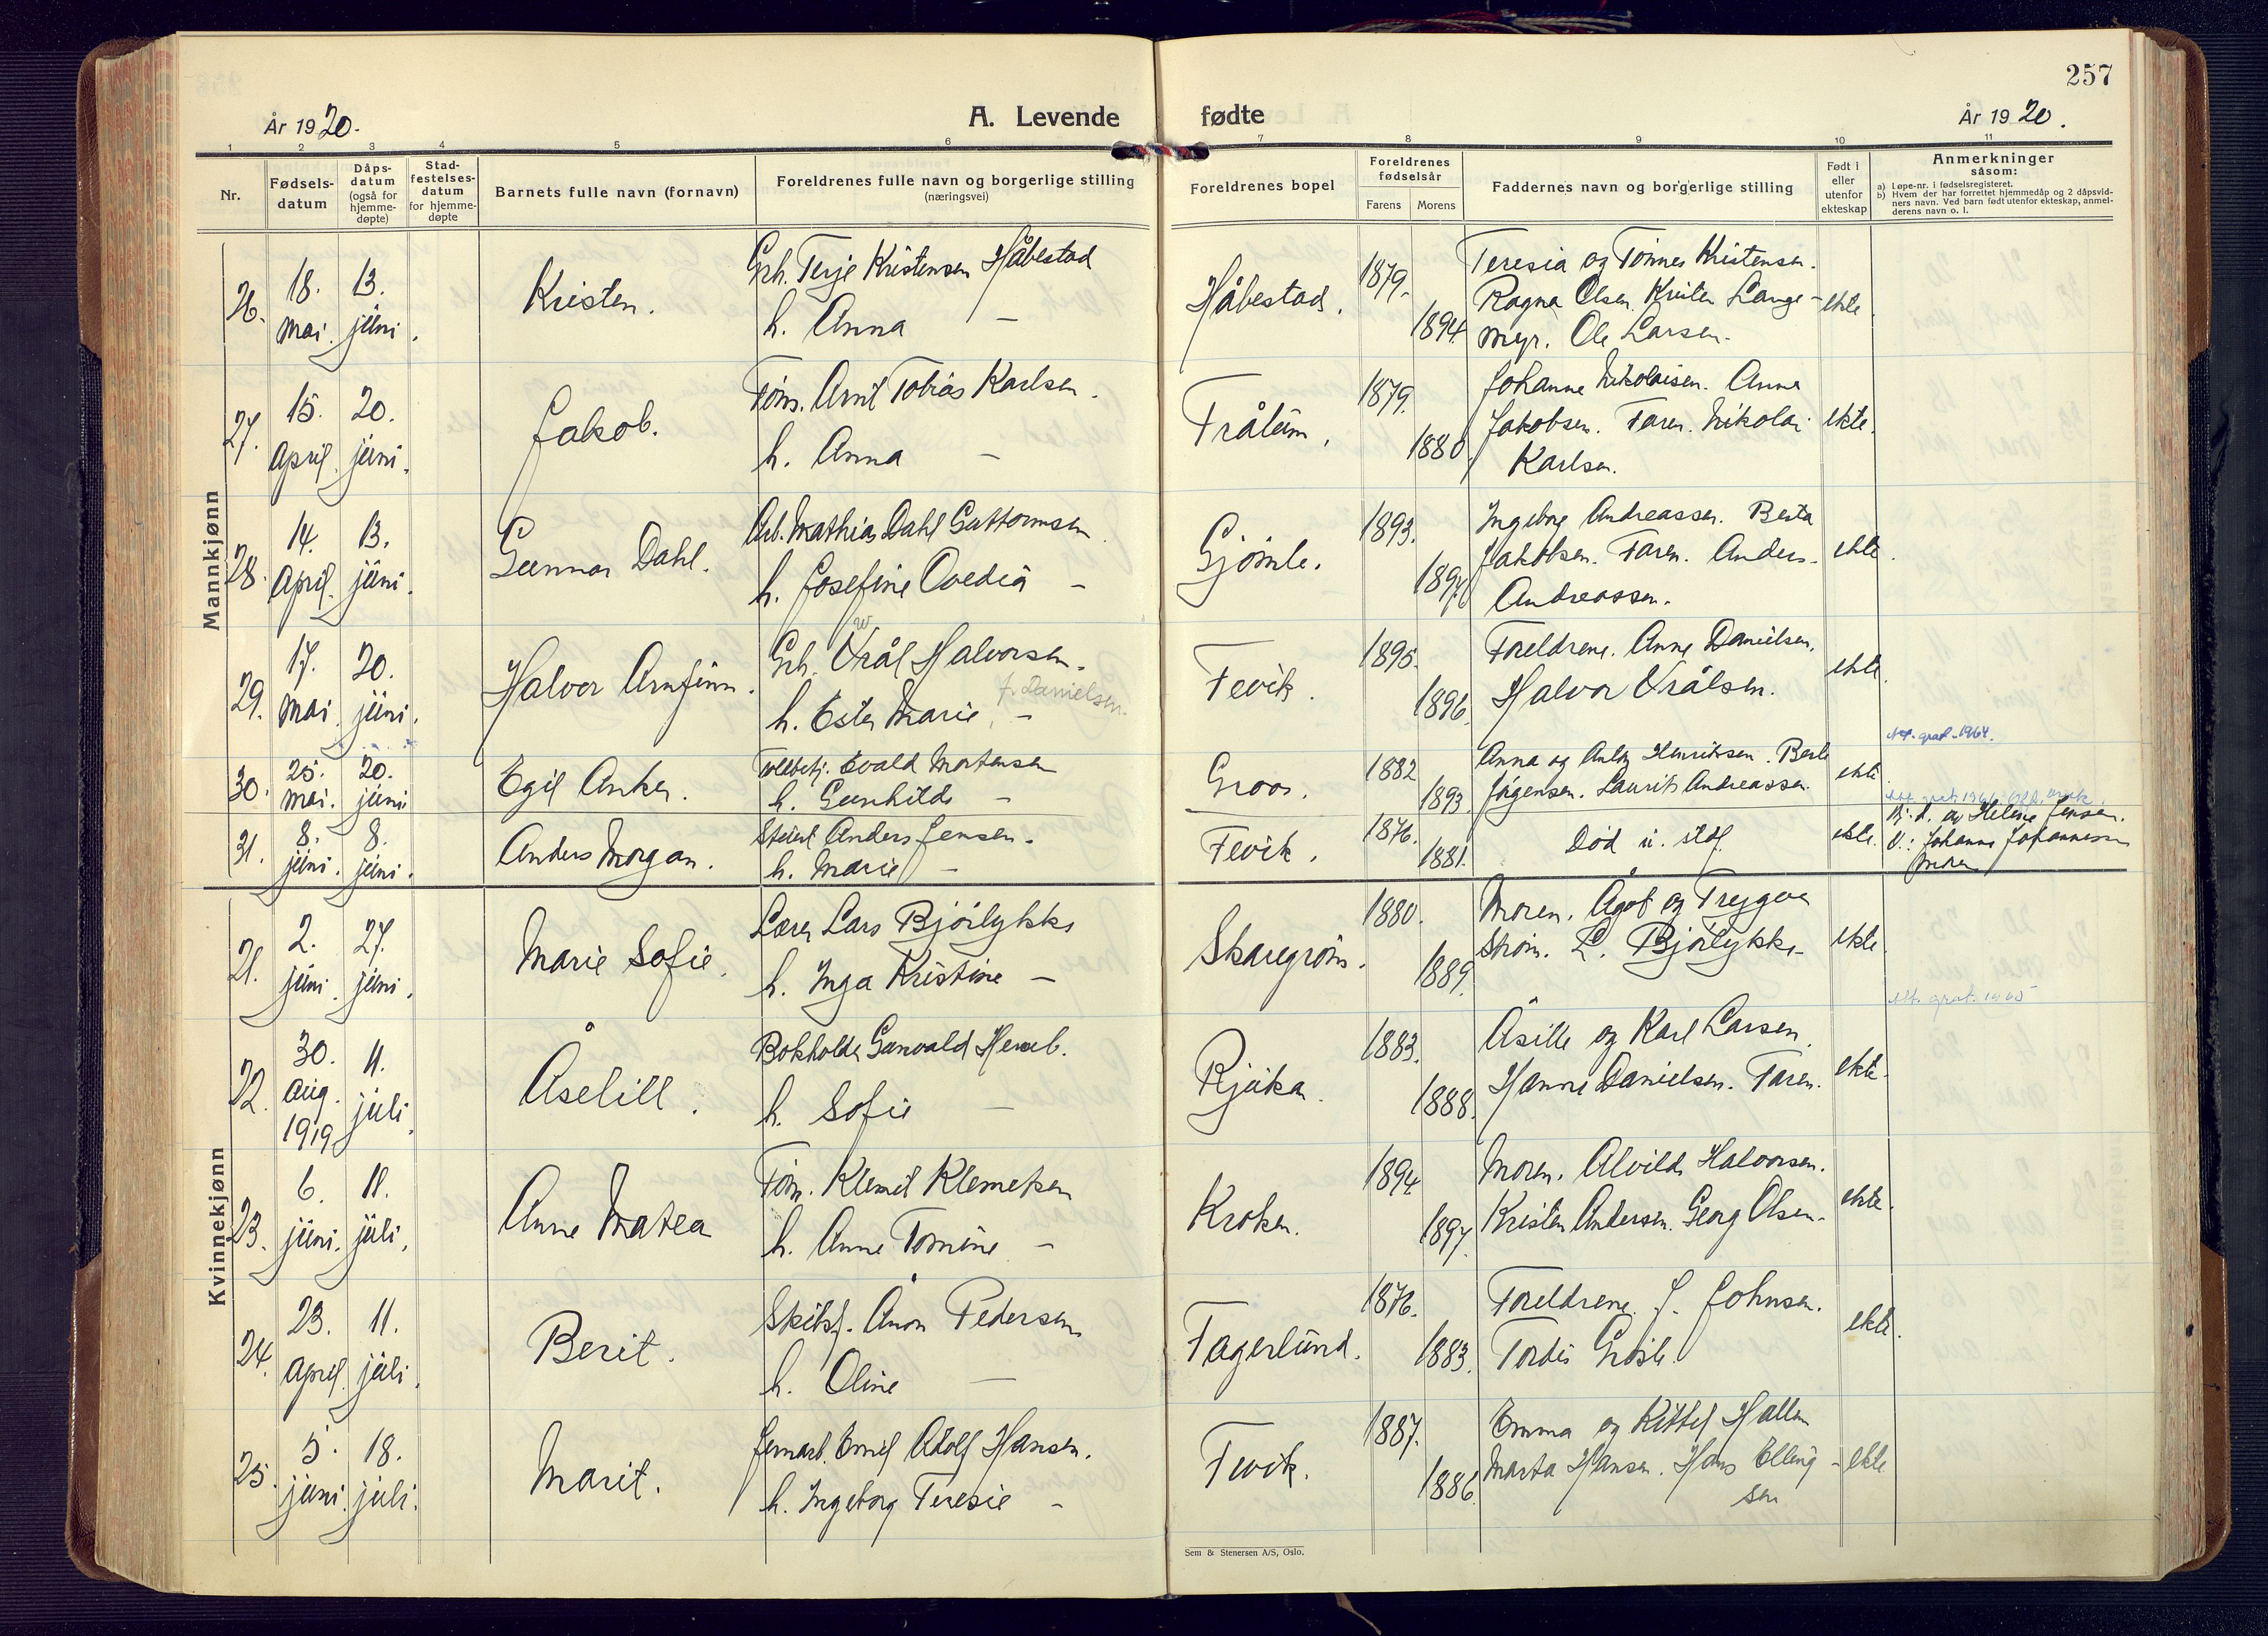 257
År 1920.
A. Levende
fødte
År 1920.
1 2 3 4 5 6 7 8 9 10 11
Nr.
Fødsels-
datum
Dåps-
datum
(også for
hjemme-
døpte)
Stad-
festelses-
datum
for hjemme-
døpte
Barnets fulle navn (fornavn)
Foreldrenes fulle navn og borgerlige stilling
(næringsvei)
Foreldrenes bopel
Foreldrenes
fødselsår
Farens Morens
Faddernes navn og borgerlige stilling
Født i
eller
utenfor
ekteskap
Anmerkninger
såsom:
a) Løpe-nr. i fødselsregisteret.
b) Hvem der har forrettet hjemmedåp og 2 dåpsvid-
ners navn. Ved barn født utenfor ekteskap, anmel-
derens navn o. l.
Mannkjønn
26. 18. mai. 13. juni.
Kristen.
Terje Kristensen Håbestad
h. Anna —
Håbestad.
1879.
1894.
Teresia og Tønnes Kristensen.
Ragna Olsen. Kristen Lange-
myr. Ole Larsen.
ekte
27. 15. April. 20. juni.
Jakob.
Tøm. Arnt Tobias Karlsen.
h. Anna —
Trålum.
1879.
1880.
Johanne Nikolaisen. Anna
Jakobsen. Faren. Nikolai
Karlsen.
ekte.
28. 14. April. 13. juni.
Gunnar Dahl.
Arb. Mathias Dahl Guttormsen.
h. Josefine Ovedia —
Gjømle.
1893.
1897.
Ingeborg Andreassen. Berta
Jakobsen. Faren. Anders
Andreassen.
ekte.
29. 17. mai. 20. juni.
Halvor Arnfinn.
w
Vrål Halvorsen.
f. Danielsen.
h. Ester Marie, —
Fevik.
1895.
1896.
Foreldrene. Anne Danielsen.
Halvor Vrålsen.
ekte.
Att. grat. 1964.
30. 25. mai. 20. juni
Egil Anker.
Evald Mortensen
h. Gunhilde —
Groos.
1882
1893.
Anna og Anton Henriksen. Berte
Jørgensen. Laurits Andreassen.
ekte.
31. 8. juni. 8. juni.
Anders Morgan.
Anders Jensen.
h. Marie —
Fevik.
1876.
1881.
Død
ekte.
Hj. d. av Helene Jensen.
V.: Johanne Johannessen
Kvinnekjønn
21. 2. juni. 27. juni.
Marie Sofie.
Lærer Lars Bjørlykke
h. Inga Kristine —
Skaregrøm.
1880.
1889.
Moren. Ågot og Tryggve
Strøm. L. Bjørlykke-
ekte.
Att. grat. 1965
22. 30. Aug. 1919 11. juli.
Åselill.
Bokholder Gunvald
h. Sofie —
Rjukan.
1883.
1888.
Åsille og Karl Larsen.
Hanna Danielsen. Faren.
ekte.
23. 6. juni. 11. juli.
Anne Matea
Tøm. Klemet Klemetsen
h. Anne Tomine —
Kroken.
1894
1897.
Moren. Alvilde Halvorsen.
Kristen Andersen. Georg Olsen.
ekte.
24. 23. April. 11. juli.
Berit.
Skibsf. Ånon Pedersen
h. Oline —
Fagerlund.
1876.
1883.
Foreldrene. J. Johnsen.
Tordis
ekte.
25. 5. juni. 18. juli.
Marit.
Jernarb. Emil Adolf Hansen.
h. Ingeborg Teresie —
Fevik.
1887.
1886.
Emma og Kittel Hallen
Marta Hansen. Hans Elling-
sen
ekte
Sem & Stenersen A/S, Oslo.